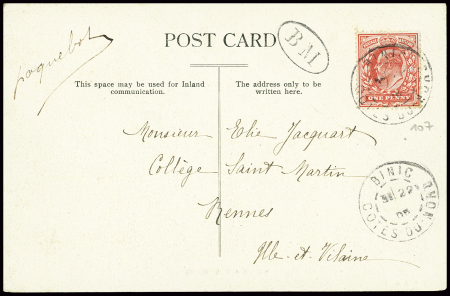 paquebot
POST CARD
BM
This space may be used for Inland communication.
The address only to be written here.
ONE PENNY
Monsieur Elie Jacquart
Collège Saint Martin
Rennes
Ille-et-Vilaine
107
BINIC
22
COTES DU NORD